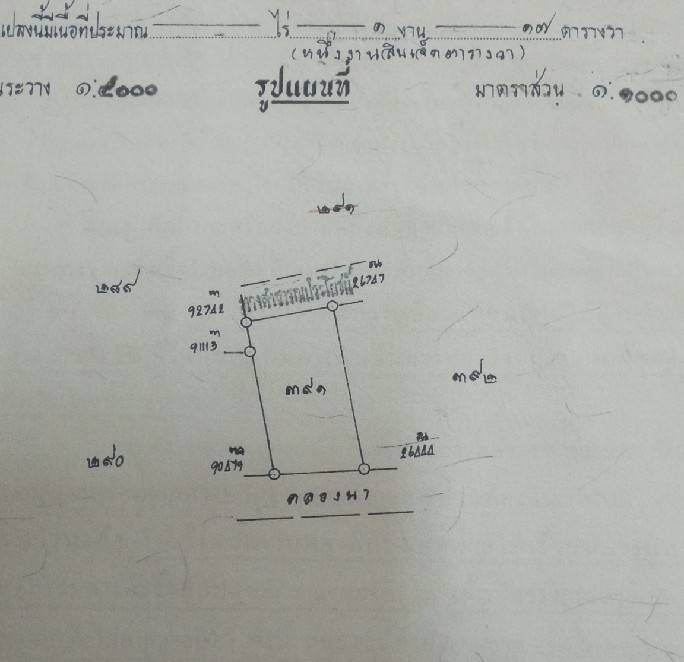 แปลงนี้มีเนื้อที่ประมาณ ไร่ ๑ งาน ๑๗ ตารางวา
(หนึ่งงานสิบเจ็ดตารางวา)
ระวาง ๑:๕๐๐๐ รูปแผนที่ มาตราส่วน ๑:๑๐๐๐
๒๙๑
๒๘๙
ทางสาธารณประโยชน์
92742
26747
91113
๓๙๑
๓๙๒
๒๙๐
90479
26444
คลองนา